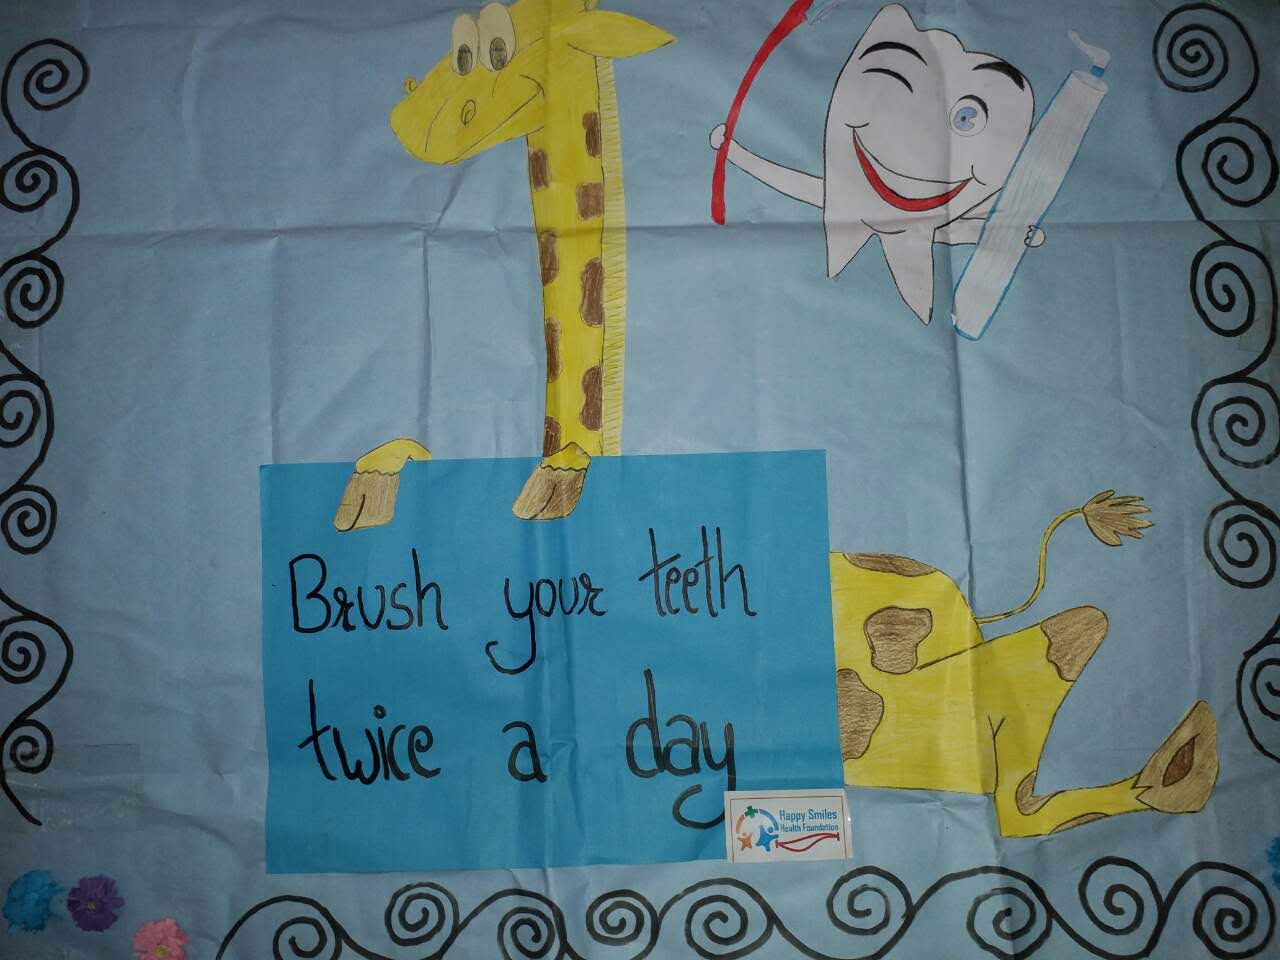 Brush your teeth
twice a day
Happy Smiles
Health Foundation